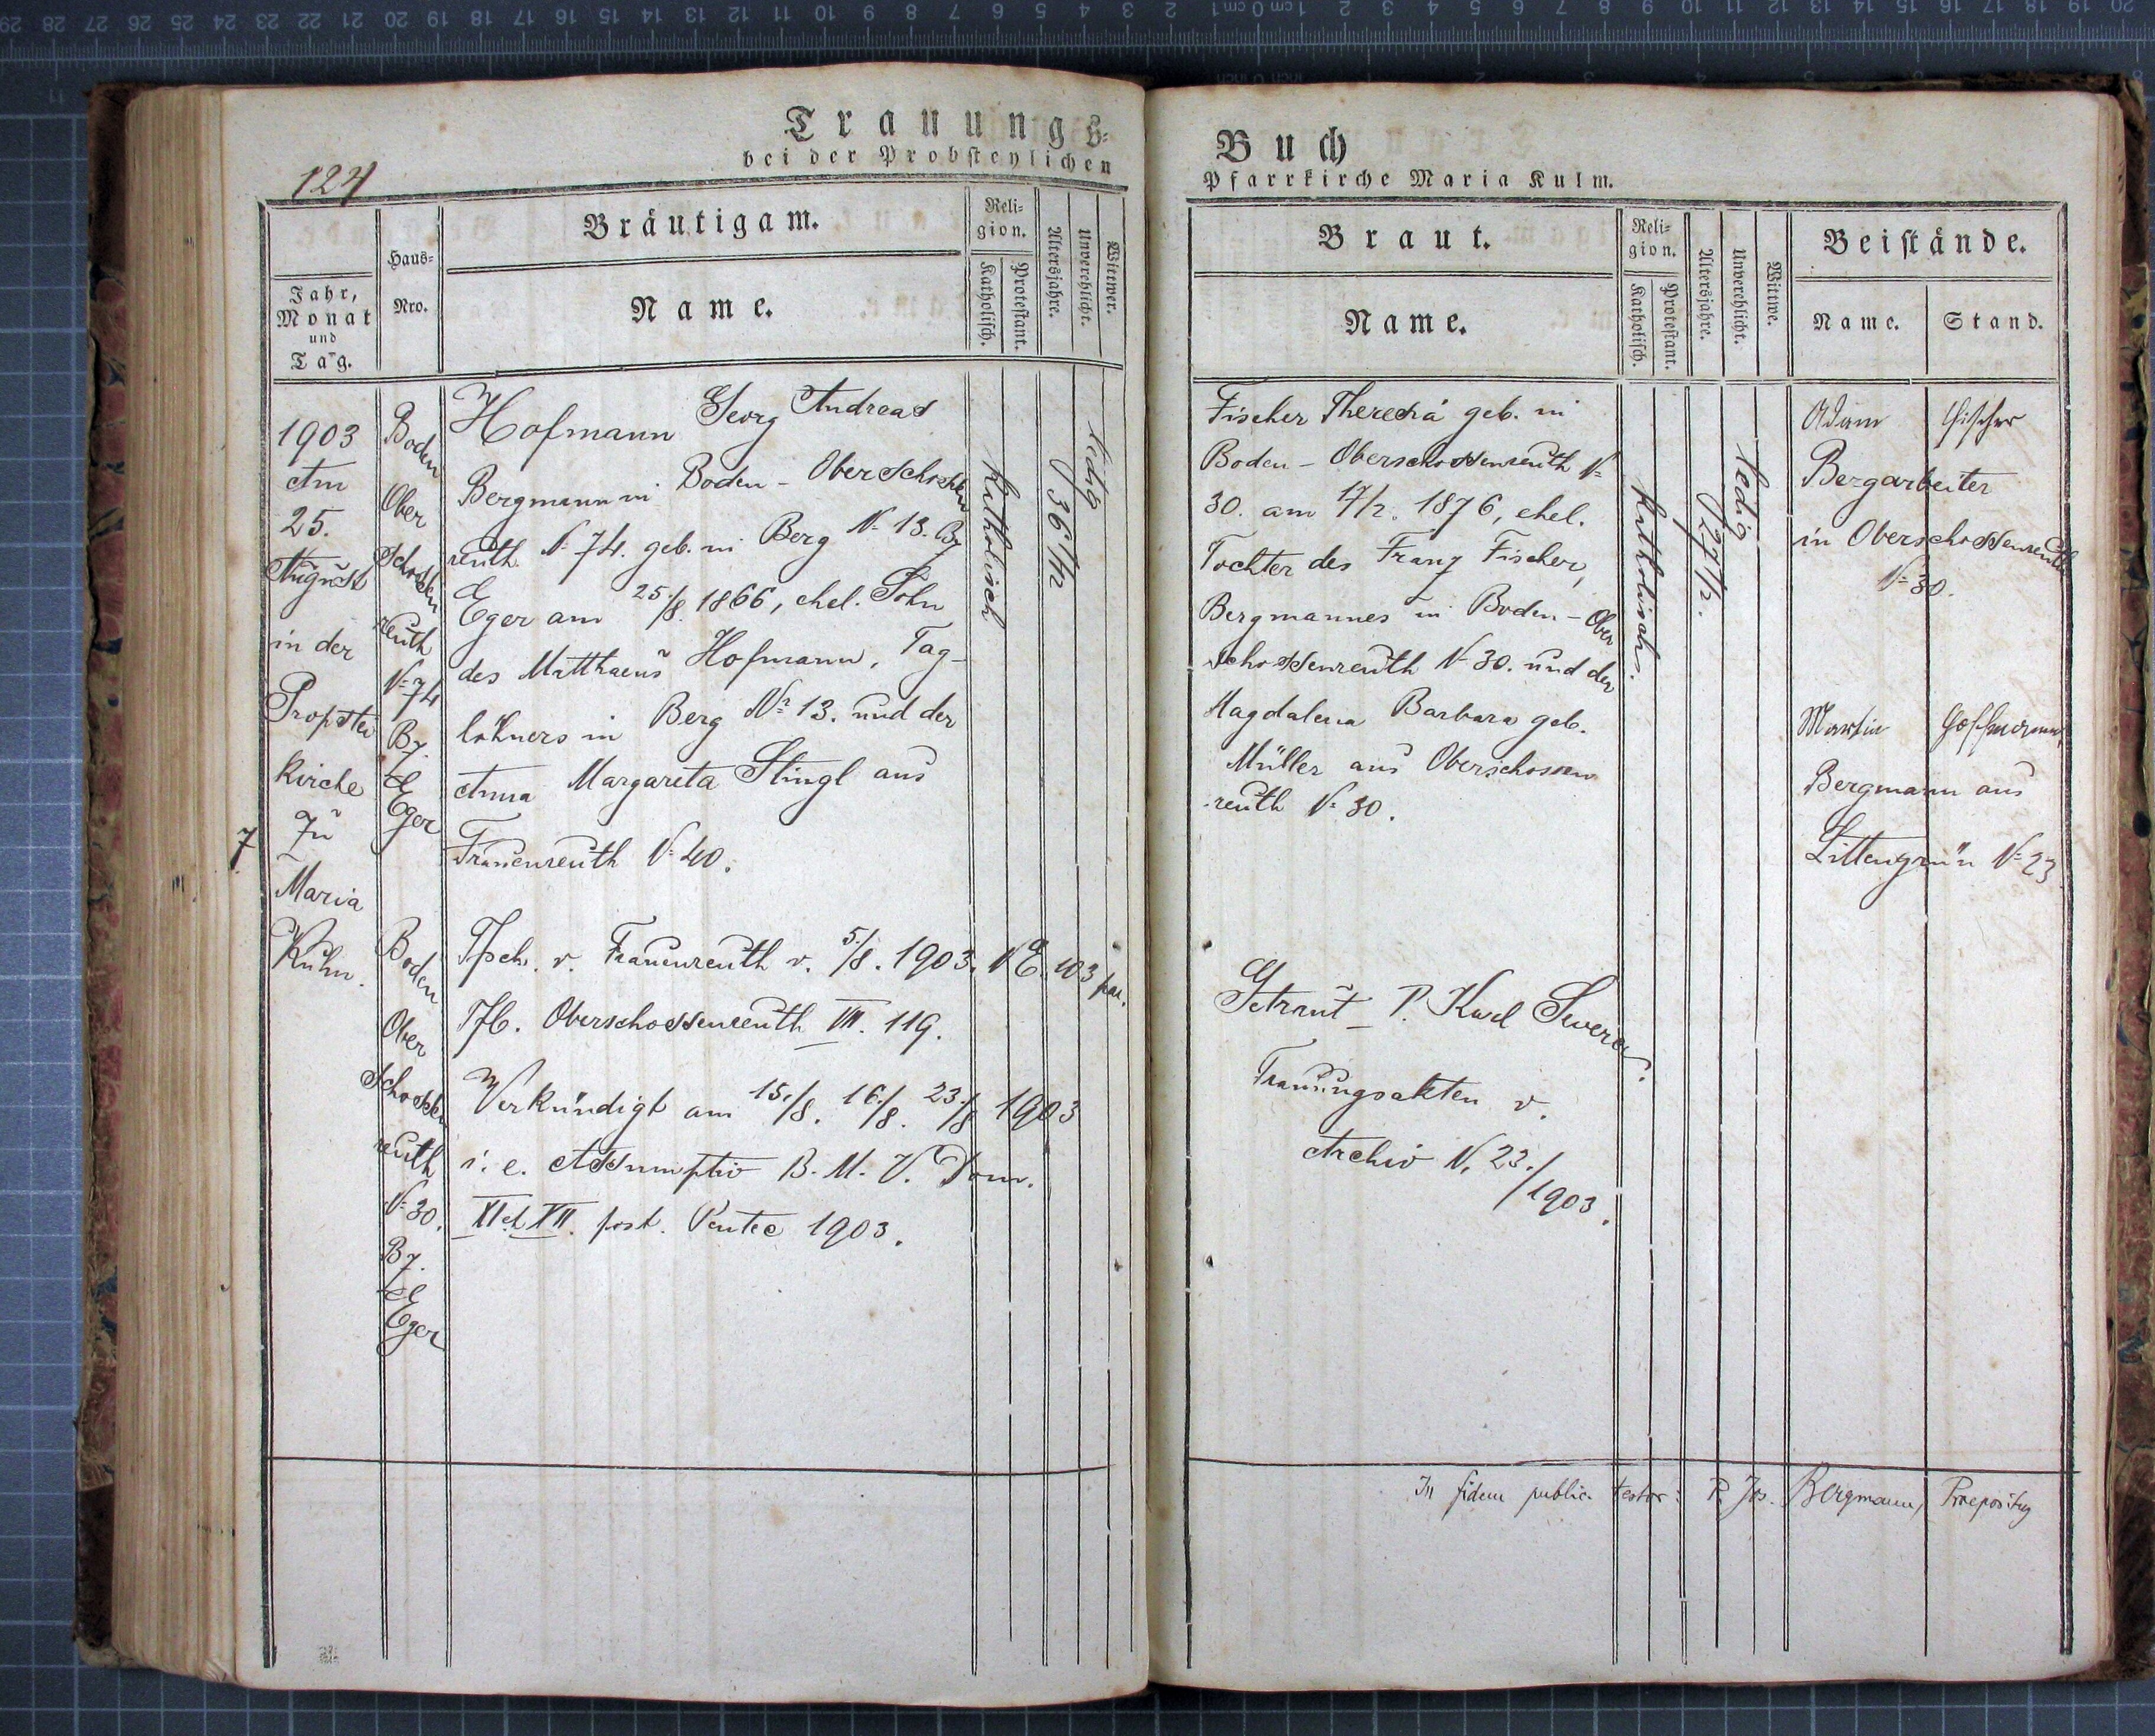 124
Trauungs-
bei der Probsteylichen
Jahr,
Monat
und
Tag.
Haus-
Nro.
Bräutigam.
Name.
Reli-
gion.
Katholisch.
Protestant.
Altersjahre.
Unverehlicht.
Wittwer.
1903
Am
25.
August
in der
Propstei
kirche
zu
Maria
Kulm.
7
Boden
Ober
schossen
reuth
N. 74
Bz.
Eger
Hofmann Georg Andreas
Bergmann in Boden - Oberschossen
reuth N. 74. geb. in Berg N. 13. Bz
Eger am 25./8. 1866, ehel. Sohn
des Matthaeus Hofmann, Tag-
löhners in Berg Nr. 13. und der
Anna Margareta Stingl aus
Frauenreuth N. 40.
Katholisch
36 1/2
ledig
Boden
Ober
schossen
reuth
N. 30.
Bz.
Eger
Tfsch. v. Frauenreuth v. 5./8. 1903. NE. 103 par.
Tfb. Oberschossenreuth VII. 119.
Verkündigt am 15./8. 16./8. 23./8 1903
i. e. Assumptio B. M. V. Dom.
XI et XII. post. Pentec 1903.
Buch
Pfarrkirche Maria Kulm.
Braut.
Name.
Reli-
gion.
Katholisch.
Protestant.
Altersjahre.
Unverehlicht.
Wittwe.
Beistände.
Name.
Stand.
Fischer Theresia geb. in
Boden - Oberschossenreuth N.
30. am 17/2. 1876, ehel.
Tochter des Franz Fischer,
Bergmannes in Boden - Ober
schossenreuth N. 30. und der
Magdalena Barbara geb.
Müller aus Oberschossen
reuth N. 30.
Katholisch.
27 1/2.
ledig
Adam Fischer
Bergarbeiter
in Oberschossenreuth
N. 30.
Martin Hoffmann,
Bergmann aus
Littengrün N. 23
Getraut P. Karl
Trauungsakten v.
Archiv N. 23./
1903.
In fidem public. testor: P. Jos. Bergmann, Praepositus